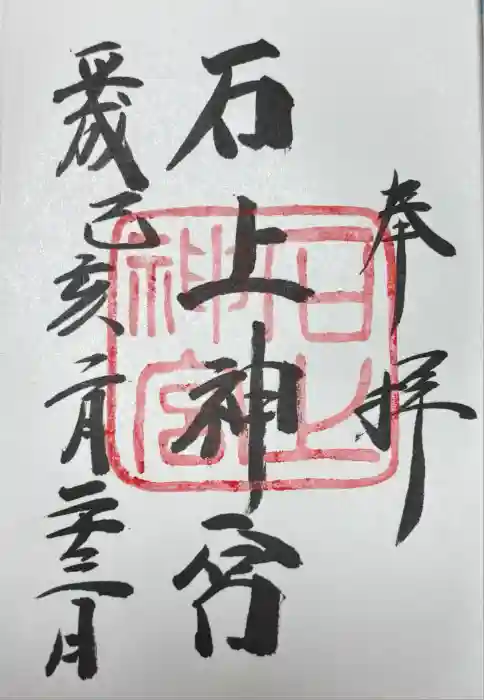 奉拝
石上神宮
平成己亥二月二十三日
石上
神宮